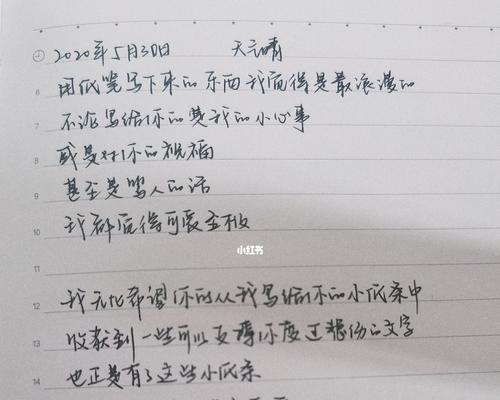 2020年5月30日 天气晴
用纸笔写下来的东西我觉得是最浪漫的
不论写给你的是我的小心事
或是对你的祝福
甚至是骂人的话
我都觉得可爱至极
小红书
我无比希望你可以从我写给你的小纸条中
收获到一些可以支撑你度过艰份的文字
也正是有了这些小纸条